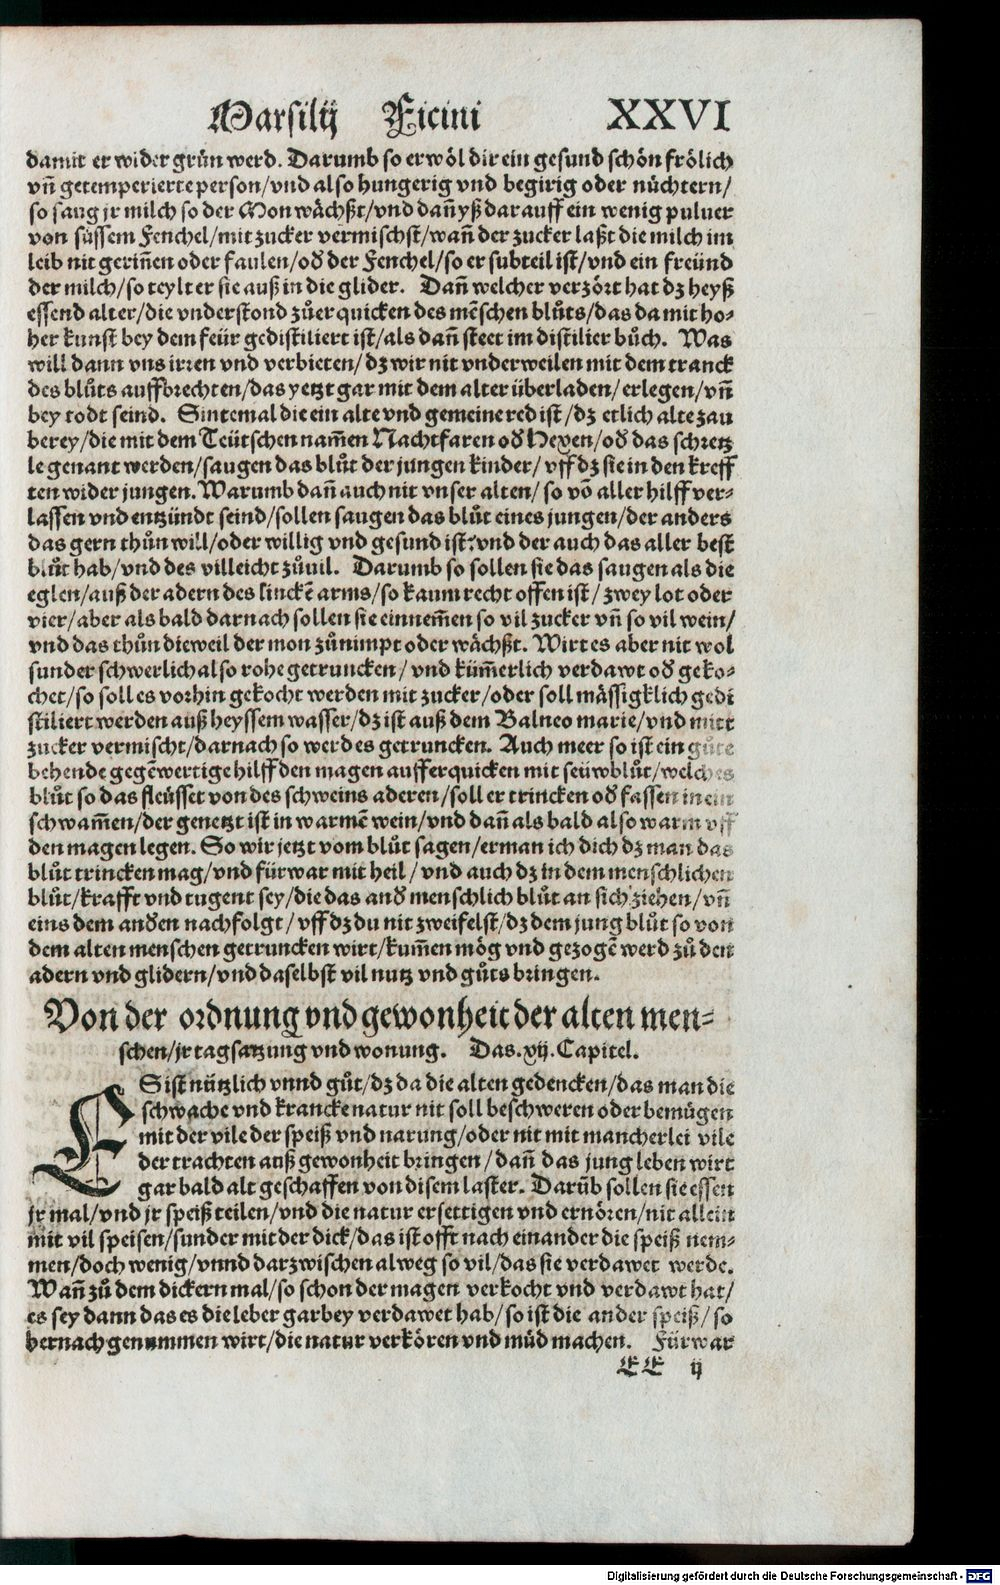 Marsilij Ficini XXVI
damit er wider grün werd. Darumb so erwöl dir ein gesund schön frölich
vñ getemperierte person/vnd also hungerig vnd begirig oder nüchtern/
so saug jr milch so der Mon wächßt/vnd dañ yß darauff ein wenig puluer
von süssem Fenchel/mit zucker vermischt/wañ der zucker laßt die milch im
leib nit geriñen oder faulen/oď der Fenchel/so er subteil ist/vnd ein freünd
der milch/so teylt er sie auß in die glider. Dañ welcher verzört hat dz heyß
essend alter/die vnderstond zůerquicken des mēschen blůts/das da mit ho-
her kunst bey dem feür gedistiliert ist/als dañ steet im distilier bůch. Was
will dann vns irren vnd verbieten/dz wir nit vnderweilen mit dem tranck
des blůts auffbrechten/das yetzt gar mit dem alter überladen/erlegen/vñ
bey todt seind. Sintemal die ein alte vnd gemeine red ist/dz etlich alte zau
berey/die mit dem Teütschen nam̃en Nachtfaren oď Hexen/oď das schretz
le genant werden/saugen das blůt der jungen kinder/vff dz sie in den kreff
ten wider jungen. Warumb dañ auch nit vnser alten/so võ aller hilff ver-
lassen vnd entzündt seind/sollen saugen das blůt eines jungen/der anders
das gern thůn will/oder willig vnd gesund ist: vnd der auch das aller best
blůt hab/vnd des villeicht zůuil. Darumb so sollen sie das saugen als die
eglen/auß der adern des linckē arms/so kaum recht offen ist/zwey lot oder
vier/aber als bald darnach sollen sie einnem̃en so vil zucker vñ so vil wein/
vnd das thůn dieweil der mon zůnimpt oder wächßt. Wirt es aber nit wol
sunder schwerlich also rohe getruncken/vnd küm̃erlich verdawt oď geko-
chet/so soll es vorhin gekocht werden mit zucker/oder soll mässigklich gedi
stiliert werden auß heyssem wasser/dz ist auß dem Balneo marie/vnd mitt
zucker vermischt/darnach so werd es getruncken. Auch meer so ist ein gůte
behende gegēwertige hilff den magen aufferquicken mit seüwblůt/welches
blůt so das fleüsset von des schweins aderen/soll er trincken oď fassen in ein
schwam̃en/der genetzt ist in warmē wein/vnd dañ als bald also warm vff
den magen legen. So wir jetzt vom blůt sagen/erman ich dich dz man das
blůt trincken mag/vnd fürwar mit heil/vnd auch dz in dem menschlichen
blůt/krafft vnd tugent sey/die das anď menschlich blůt an sich ziehen/vñ
eins dem anďen nachfolgt/vff dz du nit zweifelst/dz dem jung blůt so von
dem alten menschen getruncken wirt/kum̃en mög vnd gezogē werd zů den
adern vnd glidern/vnd daselbst vil nutz vnd gůts bringen.
Von der ordnung vnd gewonheit der alten men-
schen/jr tagsatzung vnd wonung. Das .xij. Capitel.
ES ist nützlich vnnd gůt/dz da die alten gedencken/das man die
schwache vnd krancke natur nit soll beschweren oder bemügen
mit der vile der speiß vnd narung/oder nit mit mancherlei vile
der trachten auß gewonheit bringen/dañ das jung leben wirt
gar bald alt geschaffen von disem laster. Darũb sollen sie essen
jr mal/vnd jr speiß teilen/vnd die natur ersettigen vnd ernören/nit allein
mit vil speisen/sunder mit der dick/das ist offt nach einander die speiß nem-
men/doch wenig/vnnd darzwischen alweg so vil/das sie verdawet werde.
Wañ zů dem dickern mal/so schon der magen verkocht vnd verdawt hat/
es sey dann das es die leber gar bey verdawet hab/so ist die ander speiß/so
hernach genummen wirt/die natur verkören vnd müd machen. Fürwar
EE ij
Digitalisierung gefördert durch die Deutsche Forschungsgemeinschaft - DFG